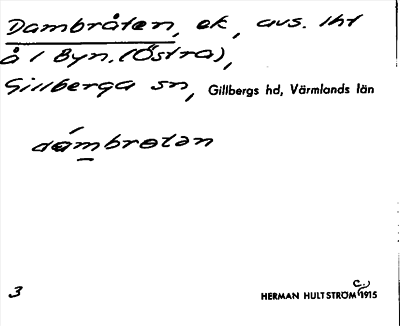 Dambråten, ek, avs. lht
å l Byn. (Östra),
Gillberga sn, Gillbergs hd, Värmlands län
dámbrɵtən
3
HERMAN HULTSTRÖM c. 1915